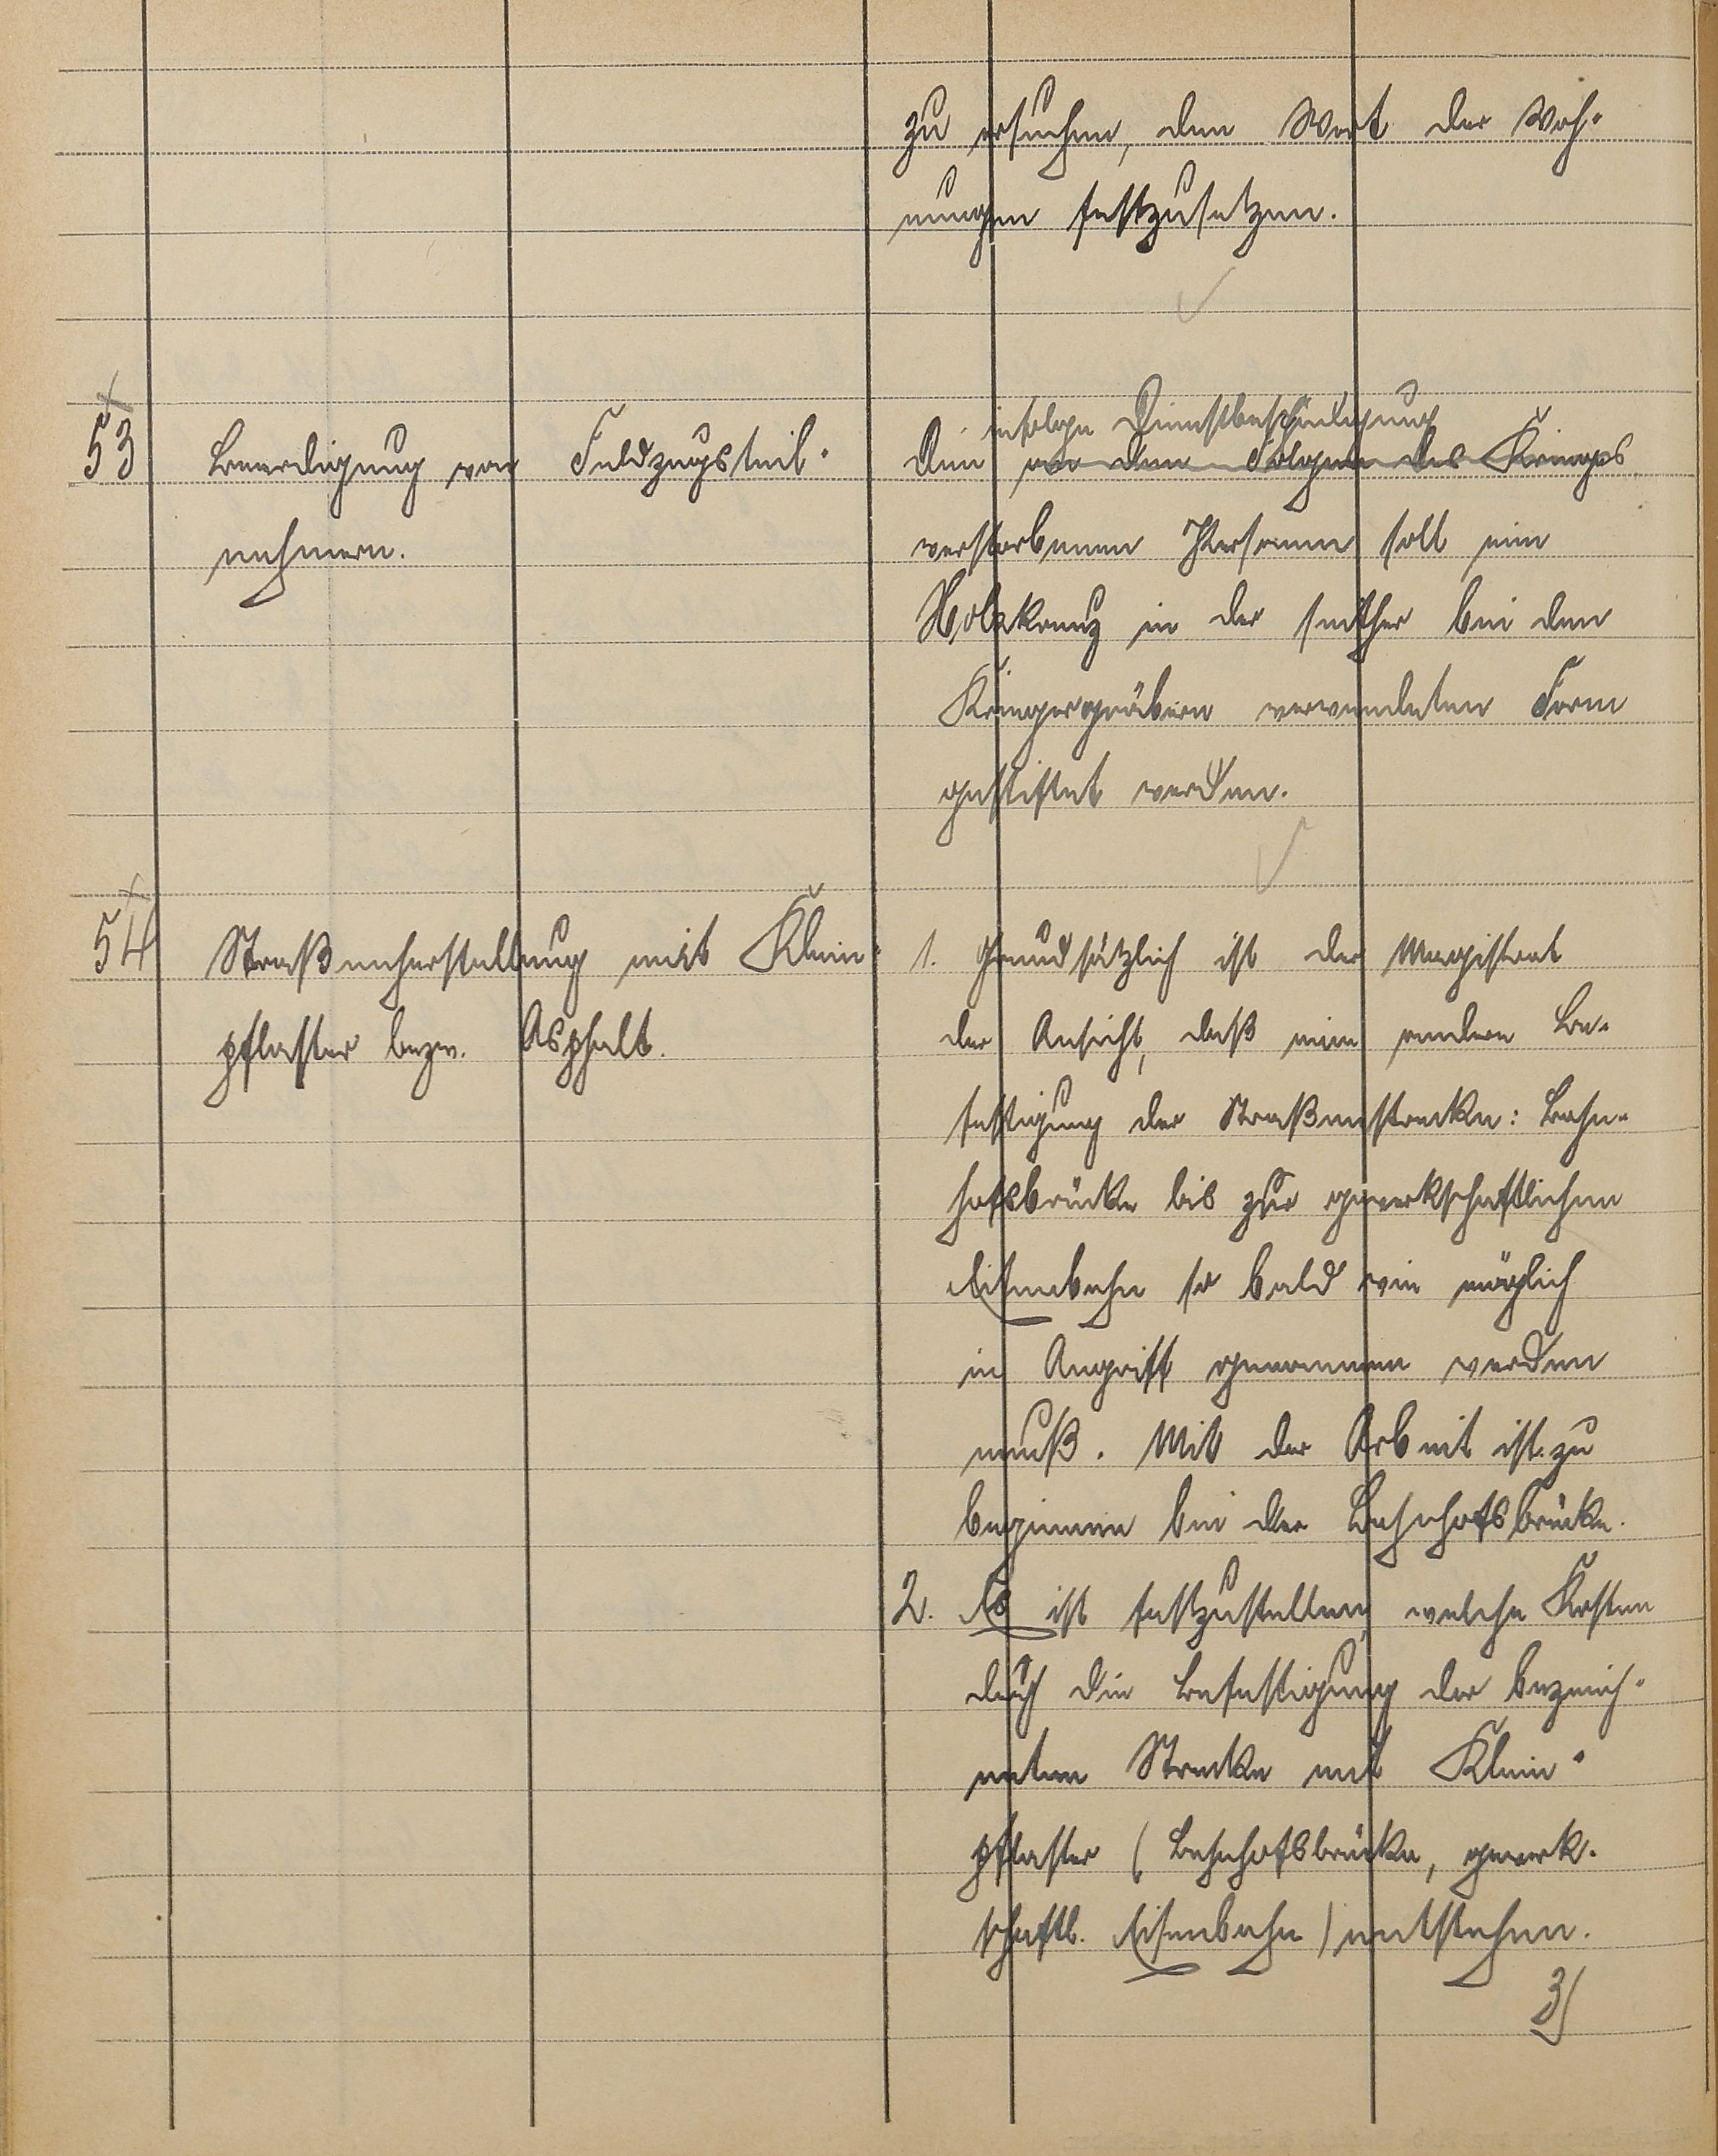 zu ersuchen, den Wert der Woh-
nungen festzusetzen.
53 Beerdigung von Feldzugsteil-
nehmern.
infolge Dienstbeschädigung
Den an den Folgen des Krieges
verstorbenen Personen soll ein
Holzkreuz in der seither bei den
Kriegergräbern verwendeten Form
gestiftet werden.
54 Straßenherstellung mit Klein-
pflaster bezw. Asphalt.
1. Grundsätzlich ist der Magistrat
der Ansicht, daß eine andere Be-
festigung der Straßenstrecke: Bahn-
hofsbrücke bis zur gewerkschaftlichen
Eisenbahn so bald wie möglich
in Angriff genommen werden
muß. Mit der Arbeit ist zu
beginnen bei der Bahnhofsbrücke.
2. Es ist festzustellen, welche Kosten
durch die Befestigung der bezeich-
neten Strecke mit Klein-
pflaster (Bahnhofsbrücke, gewerk-
schaftl. Eisenbahn) entstehen.
3)